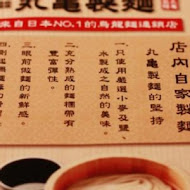 丸亀製麵
來自日本NO.1的烏龍麵連鎖店
店內自家製麵
丸亀製麵的堅持
一、只使用嚴選小麥及鹽、
水製成之自然的美味。
二、充分熟成的麵糰帶出
豐富彈性。
三、眼前做麵的新鮮感。